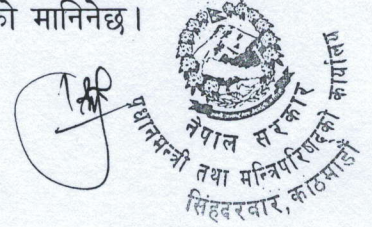 को मानिनेछ।
नेपाल सरकार
प्रधानमन्त्री तथा मन्त्रिपरिषद्को कार्यालय
सिंहदरवार, काठमाडौं